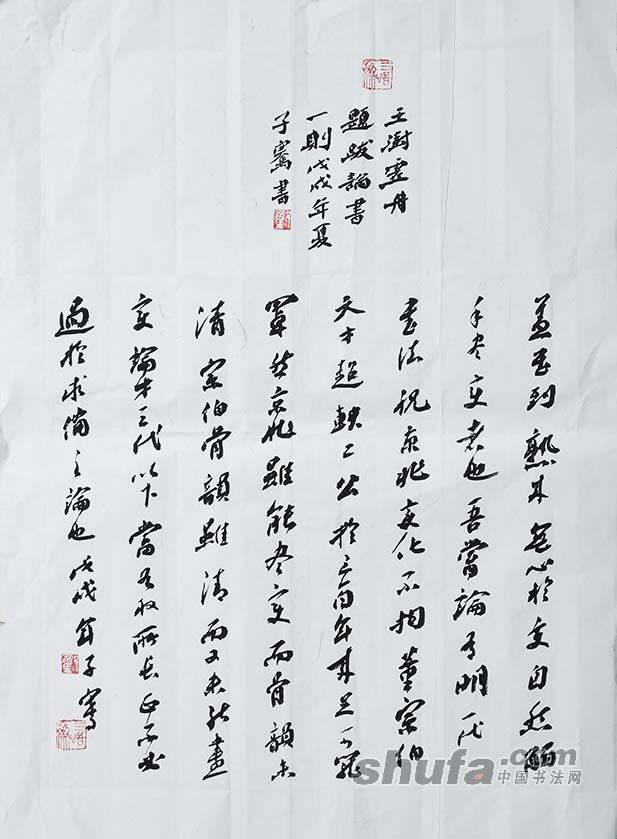 王澍虛舟
題跋論書
一則戊戌年夏
子書
蓋至到熟來無心於变自然觸
手尽变者也吾嘗論有明一代
書法祝京兆变化不拘董宗伯
天才超軼二公於三百年來足可
罩然京兆雖能尽变而骨韻未
清宗伯骨韻雖清而又未能盡
变論才三代以下當各取所長正不必
過於求備之論也戊戌年子
shufa.com
中国书法网